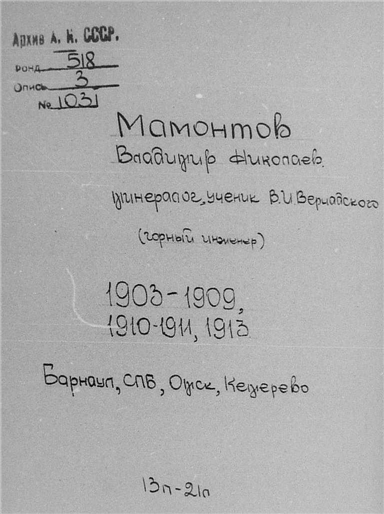 Архив А. Н. СССР.
Фонд 518
Опись 3
№ 1031
Мамонтов
Владимир Николаев.
минералог, ученик В.И. Вернадского
(горный инженер)
1903-1909,
1910-1911, 1913
Барнаул, СПБ, Омск, Кемерово
13п-21п